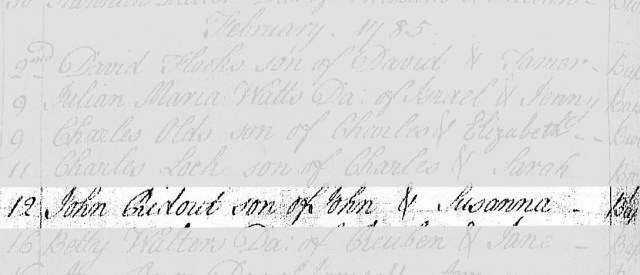 February 1785
2nd David Hooks son of David & Tamer -
9 Julian Maria Watts Da: of Israel & Jenny
9 Charles Olds son of Charles & Elizabeth
11 Charles Loch son of Charles & Sarah
12 John Ridout son of John & Susanna -
15 Betty Walters Da: of Reuben & Jane -